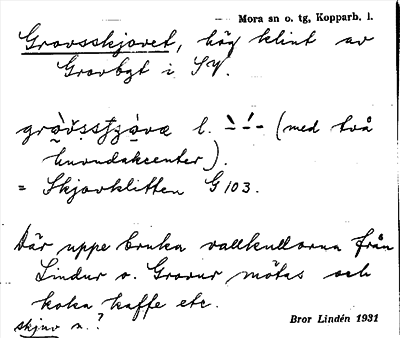 Mora sn o. tg, Kopparb. l.
Gravsskjovet, hög klint av
Gravbgt i SV.
l. (med två
huvudakcenter).
= Skjovklitten G 103.
Där uppe bruka vallkullorna från
Lindur o. Gravur mötas och
koka kaffe etc.
skjuv n.?
Bror Lindén 1931